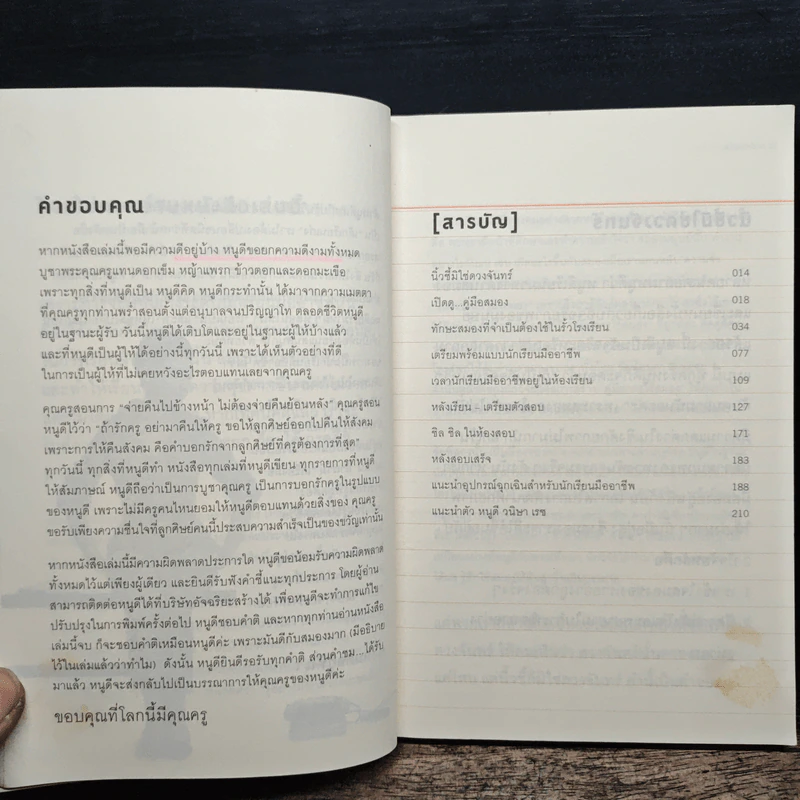 คำขอบคุณ
หากหนังสือเล่มนี้พอมีความดีอยู่บ้าง หนูดีขอยกความดีงามทั้งหมด
บูชาพระคุณครูแทนดอกเข็ม หญ้าแพรก ข้าวตอกและดอกมะเขือ
เพราะทุกสิ่งที่หนูดีเป็น หนูดีคิด หนูดีกระทำนั้น ได้มาจากความเมตตา
ที่คุณครูทุกท่านพร่ำสอนตั้งแต่อนุบาลจนปริญญาโท ตลอดชีวิตหนูดี
อยู่ในฐานะผู้รับ วันนี้หนูดีได้เติบโตและอยู่ในฐานะผู้ให้บ้างแล้ว
และที่หนูดีเป็นผู้ให้ได้อย่างนี้ทุกวันนี้ เพราะได้เห็นตัวอย่างที่ดี
ในการเป็นผู้ให้ที่ไม่เคยหวังอะไรตอบแทนเลยจากคุณครู
คุณครูสอนการ “จ่ายคืนไปข้างหน้า ไม่ต้องจ่ายคืนย้อนหลัง” คุณครูสอน
หนูดีไว้ว่า “ถ้ารักครู อย่ามาคืนให้ครู ขอให้ลูกศิษย์ออกไปคืนให้สังคม
เพราะการให้คืนสังคม คือคำบอกรักจากลูกศิษย์ที่ครูต้องการที่สุด”
ทุกวันนี้ ทุกสิ่งที่หนูดีทำ หนังสือทุกเล่มที่หนูดีเขียน ทุกรายการที่หนูดี
ให้สัมภาษณ์ หนูดีถือว่าเป็นการบูชาคุณครู เป็นการบอกรักครูในรูปแบบ
ของหนูดี เพราะไม่มีครูคนไหนยอมให้หนูดีตอบแทนด้วยสิ่งของ คุณครู
ขอรับเพียงความชื่นใจที่ลูกศิษย์คนนี้ประสบความสำเร็จเป็นของขวัญเท่านั้น
หากหนังสือเล่มนี้มีความผิดพลาดประการใด หนูดีขอน้อมรับความผิดพลาด
ทั้งหมดไว้แต่เพียงผู้เดียว และยินดีรับฟังคำชี้แนะทุกประการ โดยผู้อ่าน
สามารถติดต่อหนูดีได้ที่บริษัทอัจฉริยะสร้างได้ เพื่อหนูดีจะทำการแก้ไข
ปรับปรุงในการพิมพ์ครั้งต่อไป หนูดีชอบคำติ และหากทุกท่านอ่านหนังสือ
เล่มนี้จบ ก็จะชอบคำติเหมือนหนูดีค่ะ เพราะมันดีกับสมองมาก (มีอธิบาย
ไว้ในเล่มแล้วว่าทำไม) ดังนั้น หนูดียินดีรอรับทุกคำติ ส่วนคำชม...ได้รับ
มาแล้ว หนูดีจะส่งกลับไปเป็นบรรณาการให้คุณครูของหนูดีค่ะ
ขอบคุณที่โลกนี้มีคุณครู
[สารบัญ]
นิ้วชี้มิใช่ดวงจันทร์ 014
เปิดดู...คู่มือสมอง 018
ทักษะสมองที่จำเป็นต้องใช้ในรั้วโรงเรียน 034
เตรียมพร้อมแบบนักเรียนมืออาชีพ 077
เวลานักเรียนมืออาชีพอยู่ในห้องเรียน 109
หลังเรียน - เตรียมตัวสอบ 127
ชิล ชิล ในห้องสอบ 171
หลังสอบเสร็จ 183
แนะนำอุปกรณ์ฉุกเฉินสำหรับนักเรียนมืออาชีพ 188
แนะนำตัว หนูดี วนิษา เรซ 210